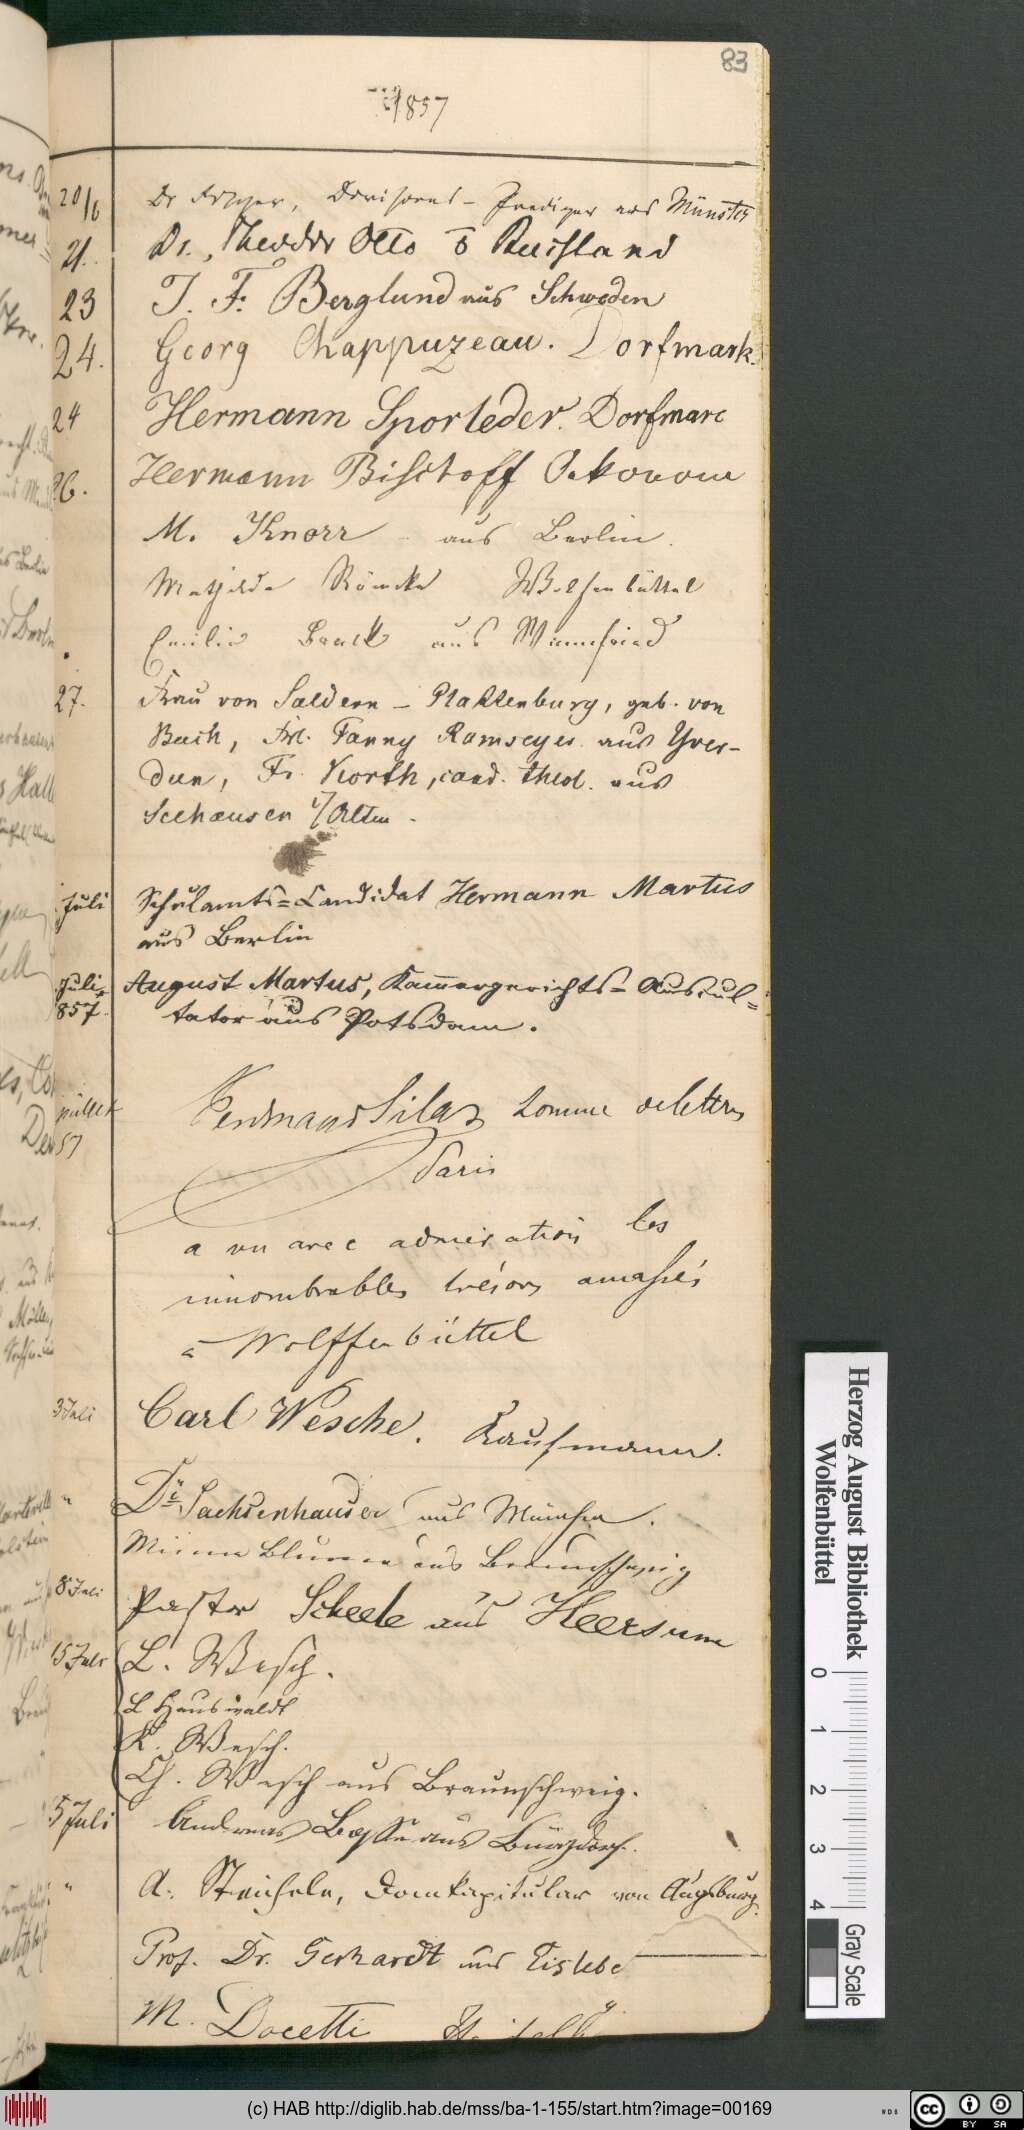 83
1857
20/6 Dr , Divisions-Prediger aus Münster
21. Dr. Theodor Otto Russland
23 J. F. Berglund aus Schweden
24. Georg Chappuzeau. Dorfmark.
24 Hermann Sporleder. Dorfmarc
26. Hermann Bischoff Oekonom
M. Knorr aus Berlin.
Mathilde Wolfenbüttel
Emilie aus Wannfried
27. Frau von Saldern – Plattenburg, geb. von
Buch, Frl. Fanny Ramseyer aus Yver-
dun, Fr. North, cand. theol. aus
Seehausen i/Altm.
Juli Schulamts=Candidat Hermann Martus
aus Berlin
Juli August Martus, Kammergerichts=Auscul=
857. tator aus Potsdam.
juillet Ferdinand Silas homme de lettres
57 Paris
a vu avec admiration les
innombrables trésors amassés
à Wolffenbüttel
3 Juli Carl Wesche. Kaufmann.
" Dr Sachsenhauser aus München.
Minna Blume aus Braunschweig
8 Juli Pastor Scheele aus Heersum
15 Juli L. Wesch.
L Hauswaldt
K. Wesch.
Ch. Wesch aus Braunschweig.
5 Juli Andreas aus Burgdorf.
" A. Steichele, Domkapitular von Augsburg.
Prof. Dr. Gerhardt aus Eisleben
M. Docetti
Herzog August Bibliothek
Wolfenbüttel
0 1 2 3 4
Gray Scale
(c) HAB http://diglib.hab.de/mss/ba-1-155/start.htm?image=00169
WDB
cc
BY SA